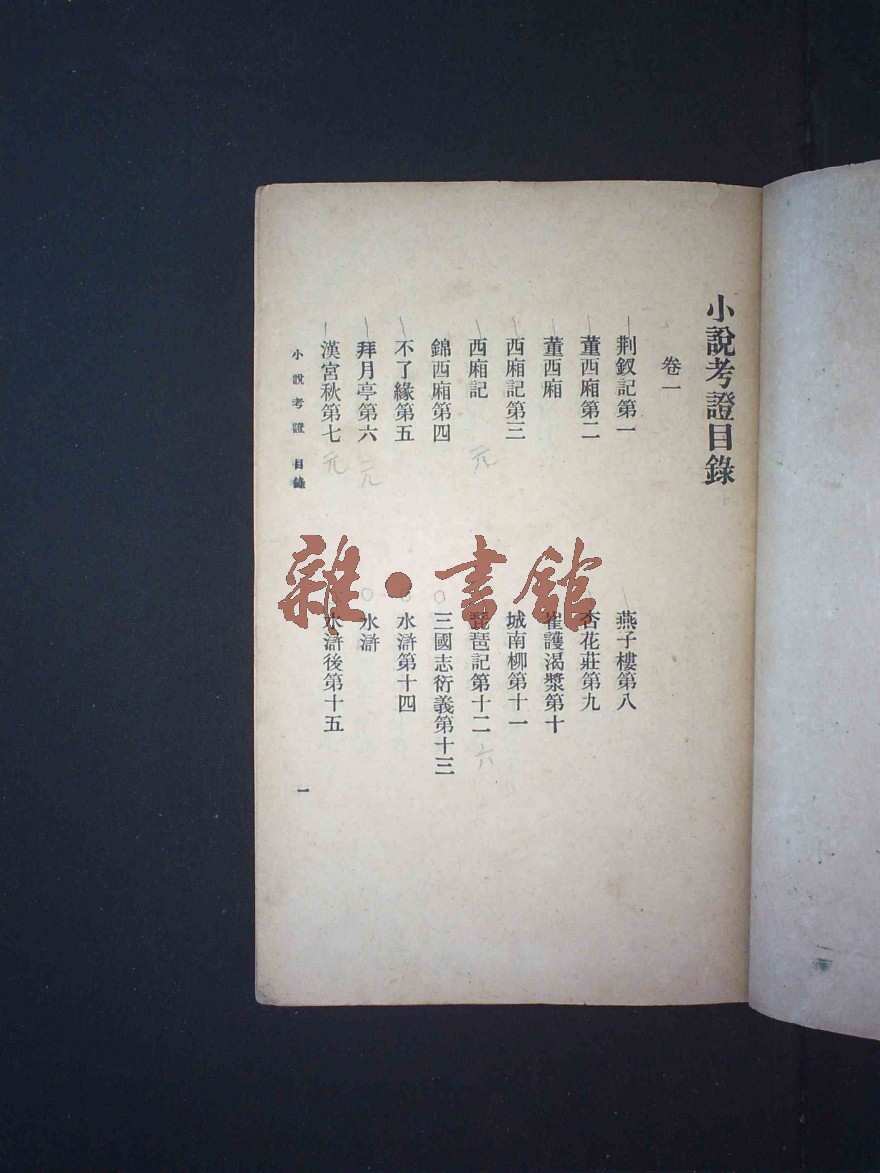 小說考證目錄
卷一
荆釵記第一
董西廂第二
董西廂
西廂記第三
西廂記 元
錦西廂第四
不了緣第五
拜月亭第六 元
漢宮秋第七 元
燕子樓第八
杏花莊第九
崔護渴漿第十
城南柳第十一
琵琶記第十二 六
三國志衍義第十三
水滸第十四
水滸
水滸後第十五
小說考證 目錄
一
雜·書館